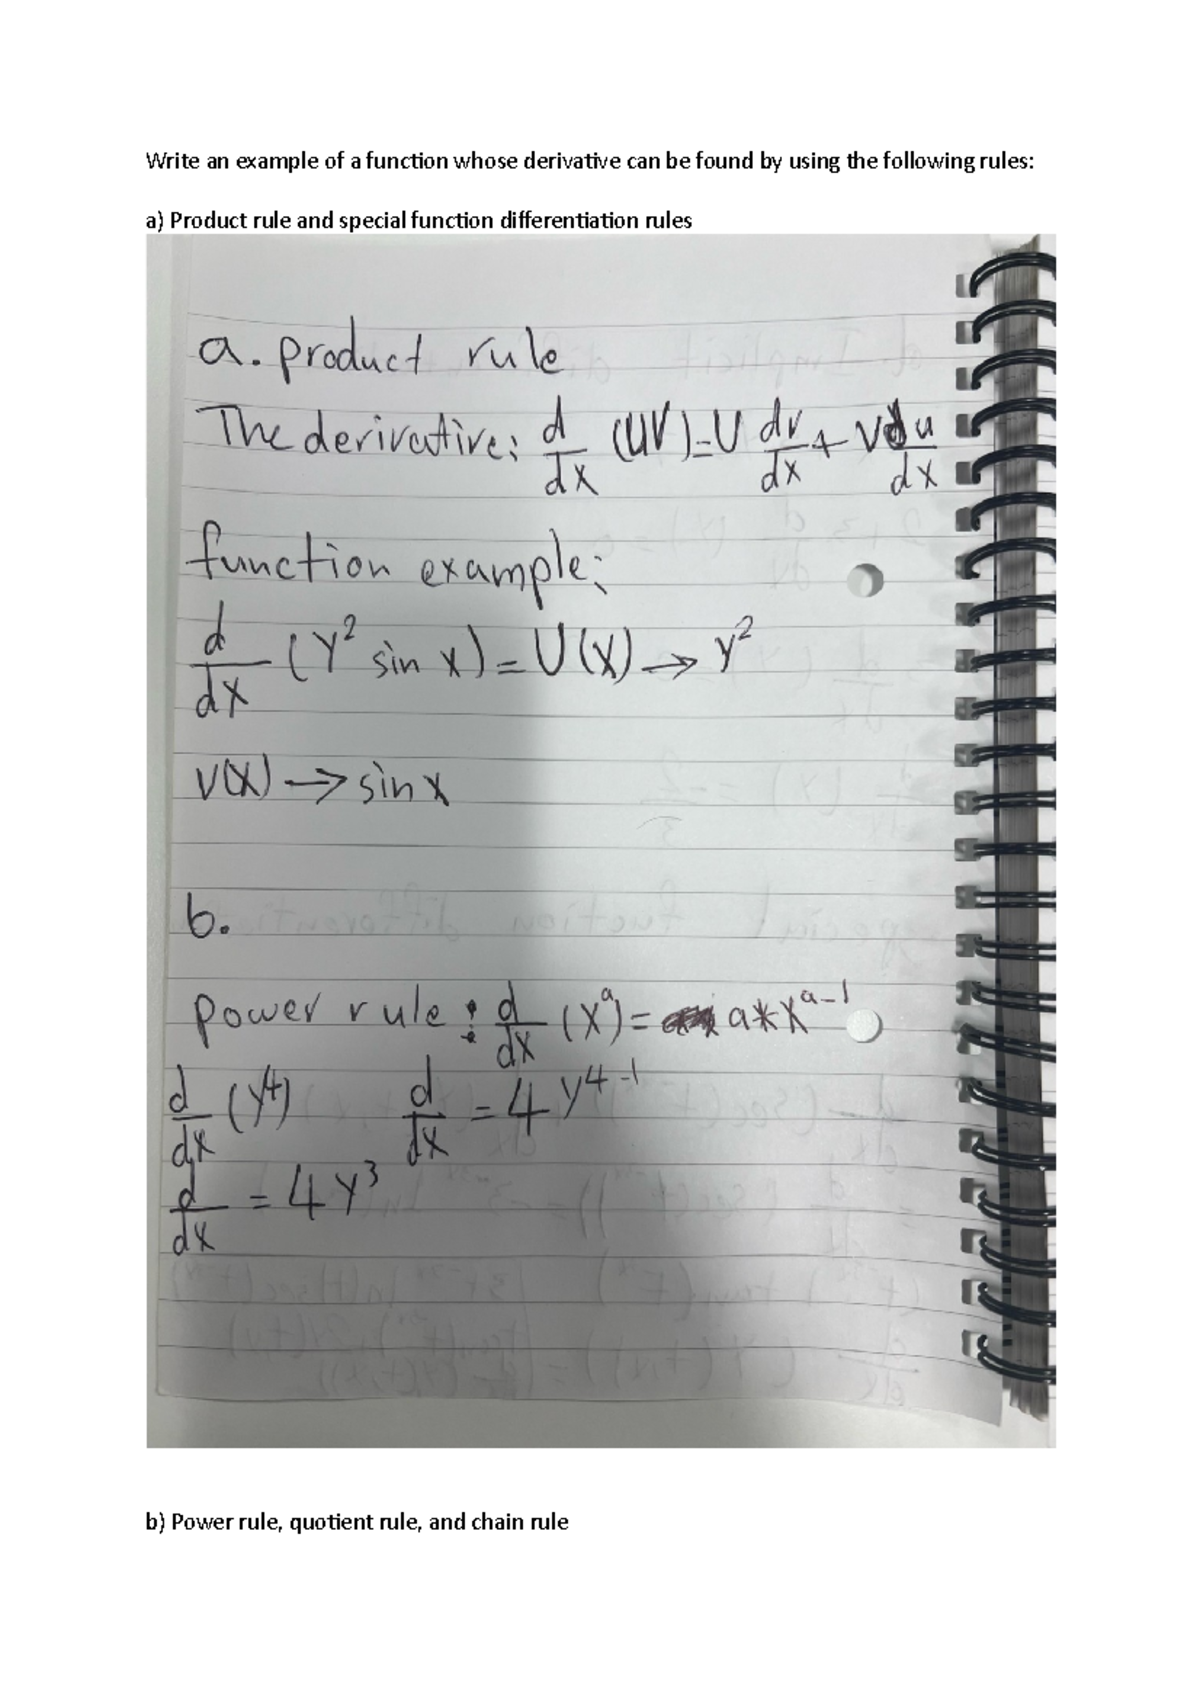 Write an example of a function whose derivative can be found by using the following rules:
a) Product rule and special function differentiation rules
a. product rule
The derivative: d/dx (UV) = U dv/dx + V du/dx
function example:
d/dx (Y² sin x) = U(X) → y²
V(X) → sin x
b.
power rule : d/dx (X^a) = a*X^a-1
d/dx (Y⁴) d/dx = 4 y^4-1
d/dx = 4 Y³
b) Power rule, quotient rule, and chain rule